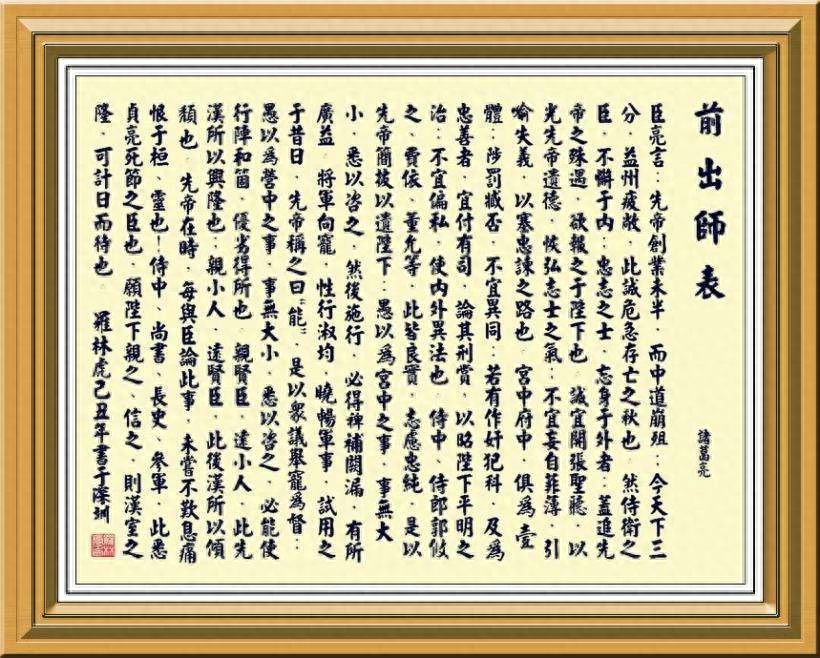 前出師表
諸葛亮
臣亮言：先帝創業未半．而中道崩殂：今天下三
分．益州疲敝．此誠危急存亡之秋也．然侍衛之
臣．不懈于内：忠志之士．忘身于外者：蓋追先
帝之殊遇．欲報之于陛下也．誠宜開張聖聽．以
光先帝遺德．恢弘志士之氣：不宜妄自菲薄．引
喻失義．以塞忠諫之路也．宮中府中．俱為壹
體：陟罰臧否．不宜異同：若有作奸犯科．及為
忠善者．宜付有司．論其刑賞．以昭陛下平明之
治：不宜偏私．使内外異法也．侍中、侍郎郭攸
之、費依、董允等．此皆良實．志慮忠純．是以
先帝簡拔以遺陛下：愚以為宮中之事．事無大
小．悉以咨之．然後施行．必得裨補闕漏．有所
廣益．將軍向寵．性行淑均．曉暢軍事．試用之
于昔日．先帝稱之曰“能”．是以衆議舉寵為督：
愚以為營中之事．事無大小．悉以咨之．必能使
行陣和箇．優劣得所也．親賢臣．遠小人．此先
漢所以興隆也：親小人．遠賢臣．此後漢所以傾
頹也．先帝在時．每與臣論此事．未嘗不歎息痛
恨于桓、靈也！侍中、尚書、長史、參軍．此悉
貞亮死節之臣也．願陛下親之、信之．則漢室之
隆．可計日而待也．羅林虎己丑年書于深圳